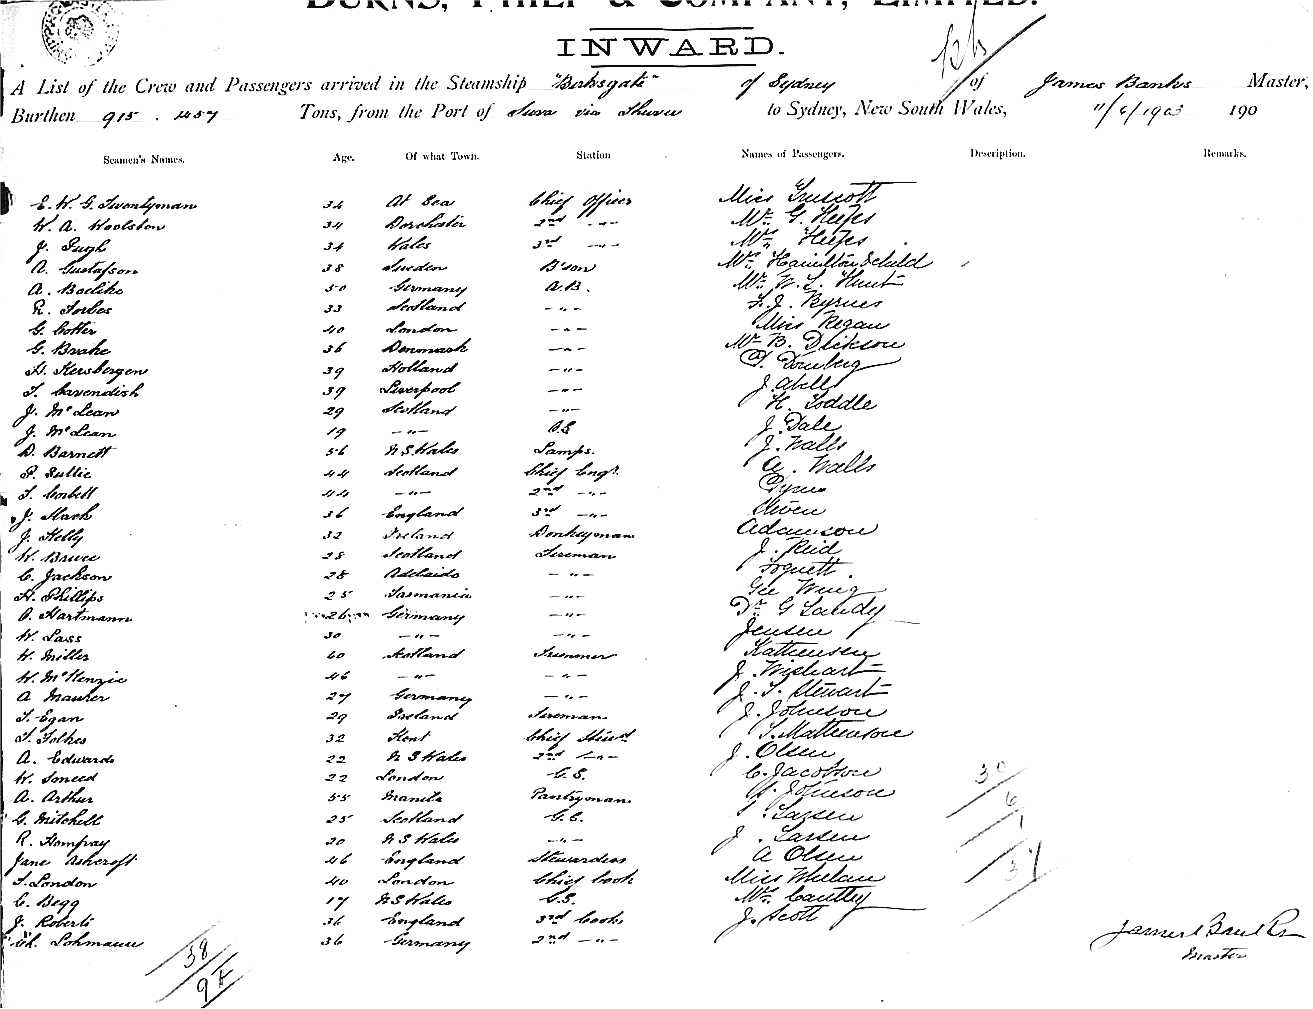 BURNS, PHILP & COMPANY, LIMITED.
INWARD.
A List of the Crew and Passengers arrived in the Steamship "Birksgate" of Sydney of James Banks Master,
Burthen 915 . 457 Tons, from the Port of Suva via to Sydney, New South Wales, 11/6/1903 190
Seamen's Names. Age. Of what Town. Station Names of Passengers. Description. Remarks.
E. W. G. Twentyman 34 At Sea Chief Officer Miss Truscott
W. A. Woolston 34 Dorchester 2nd -"- Mr. G.
J. Pugh 34 Wales 3rd -"- Mrs.
A. Gustafson 38 Sweden B'son Mrs. Hamilton & child
A. 50 Germany A.B. Mr. W. L. Hunt
R. Forbes 33 Scotland -"- F. J. Byrnes
G. Cotter 40 London -"- Miss Regan
G. Brake 36 Denmark -"- Mr. B. Dickson
H. Kersbergen 39 Holland -"-
T. Cavendish 39 Liverpool -"- J. Abell
J. McLean 29 Scotland -"- H. Toddle
J. McLean 19 -"- O.S J. Dale
D. Barnett 56 N.S.Wales Lamps. J. Walls
44 Scotland Chief Engr. A. Walls
T. Corbett 44 -"- 2nd -"-
J. 36 England 3rd -"-
J. Kelly 32 Ireland Donkeyman Adamson
W. Bruce 28 Scotland Fireman J. Reid
C. Jackson 28 Adelaide -"-
H. Phillips 25 Tasmania -"- Gee Wing
O. Hartmann 26 Germany -"- Dr. G Landy
W. Lass 30 -"- -"- Jensen
W. Miller 40 Scotland Trimmer
W. McKenzie 46 -"- -"- J. Wishart
A Maurer 27 Germany -"- J. T. Stewart
T. Egan 29 Ireland Fireman J. Johnson
T. Folkes 32 Kent Chief Stew'd T. Mathewson
A. Edwards 22 N S Wales 2nd -"- J. Olsen
W. Smeed 22 London G.S. C. Jacobson
A. Arthur 55 Manila Pantryman Johnson
G. Mitchell 25 Scotland Larsen
R. 20 N S Wales -"- J. Larsen
Jane Ashcroft 46 England Stewardess A Olsen
T. London 40 London Chief Cook Miss Whelan
C. Begg 17 N S Wales Mr. Cantley
J. Roberts 36 England 3rd Cook J. Scott
Lohmann 36 Germany 2nd -"-
30
6
1
37
38
James Banks
Master